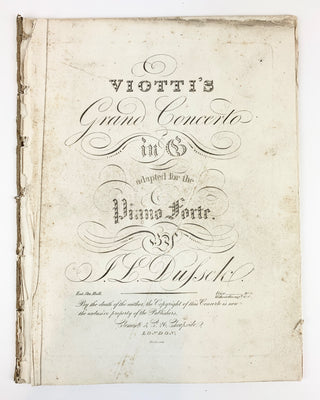 VIOTTI'S
Grand Concerto
in G
adapted for the
Piano Forte.
BY
J. L. Dussek
Ent. Sta. Hall.
By the death of the author, the Copyright of this Concerto is now
the exclusive property of the Publishers.
LONDON.